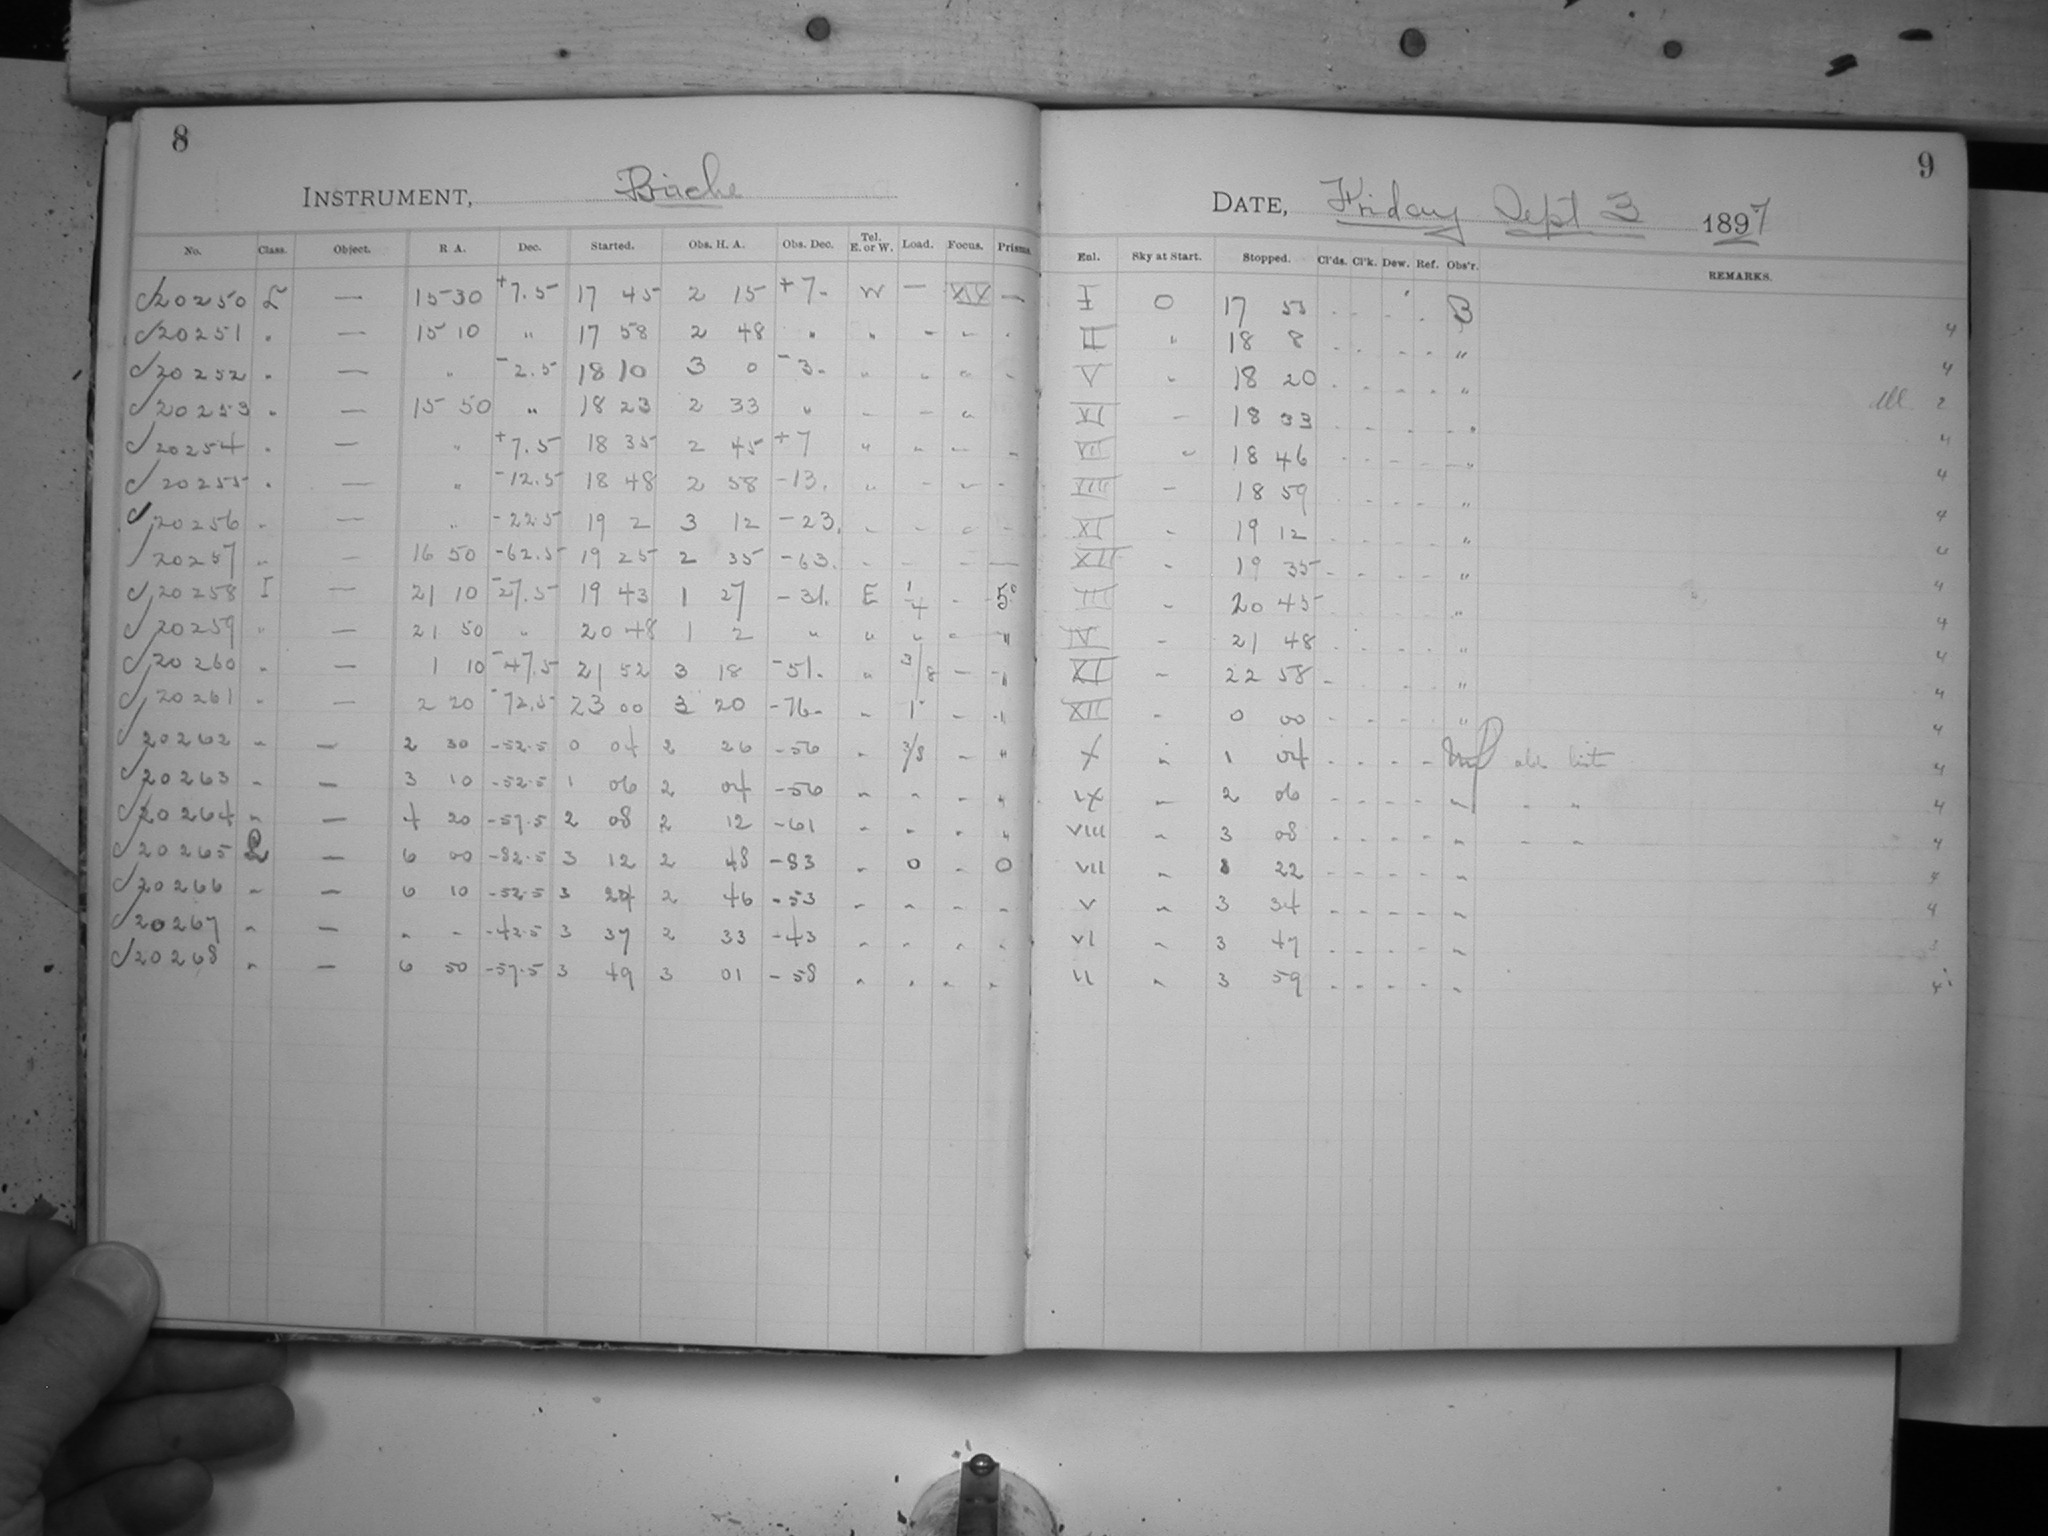 8
INSTRUMENT, Bache
No. Class. Object. R. A. Dec. Started. Obs. H. A. Obs. Dec. Tel. E. or W. Load. Focus. Prisms.
20250 L — 15 30 +7.5 17 45 2 15 +7 W — XIX —
20251 " — 15 10 " 17 58 2 48 " " - - -
20252 " — " -2.5 18 10 3 0 -3 " " " -
20253 " — 15 50 " 18 23 2 33 " - - "
20254 " — " +7.5 18 35 2 45 +7 " - - -
20255 " — " -12.5 18 48 2 58 -13 " - - -
20256 " — " -22.5 19 2 3 12 -23 - - - -
20257 " — 16 50 -62.5 19 25 2 35 -63 - - - —
20258 I — 21 10 -27.5 19 43 1 27 -31 E 1/4 - 5°
20259 " — 21 50 " 20 48 1 2 " " " - "
20260 " — 1 10 -47.5 21 52 3 18 -51 " 3/8 - "
20261 " — 2 20 -72.5 23 00 3 20 -76 - 1 - "
20262 " — 2 30 -52.5 0 04 2 26 -56 - 3/8 - "
20263 " — 3 10 -52.5 1 06 2 04 -56 - " - "
20264 " — 4 20 -57.5 2 08 2 12 -61 - - - "
20265 L — 6 00 -82.5 3 12 2 48 -83 - 0 - 0
20266 " — 6 10 -52.5 3 24 2 46 -53 - - - -
20267 " — " " -42.5 3 37 2 33 -43 - - - -
20268 " — 6 50 -57.5 3 49 3 01 -58 - - - -
9
DATE, Friday Sept 3 1897
Enl. Sky at Start. Stopped. Cl'ds. Cl'k. Dew. Ref. Obs'r. REMARKS.
I 0 17 55 - - - - B 4
II " 18 8 - - - - " 4
V " 18 20 - - - - " 2
VI - 18 33 - - - - " 4
VII " 18 46 - - - - " 4
VIII - 18 59 - - - - " 4
XI - 19 12 - - - - " 4
XII - 19 35 - - - - " 4
III - 20 45 - - - - " 4
IV - 21 48 - - - - " 4
XI - 22 58 - - - - " 4
XII - 0 00 - - - - " 4
X " 1 04 - - - - 4
IX " 2 06 - - - - " " " 4
VIII " 3 08 - - - - " " " 4
VII " 22 - - - - " 4
V " 3 34 - - - - " 4
VI " 3 47 - - - - " 3
II " 3 59 - - - - " 4